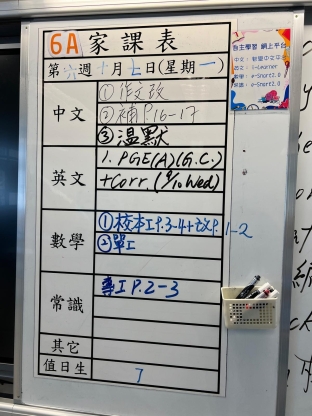 6A 家課表
第六週十月七日(星期一)
中文
①作文改
②補P.16-17
③温默
英文
1. PGE(A)(G.C.)
+Corr.(9/10 Wed)
數學
①校本工P.3-4+改P.1-2
②單工
常識
專工P.2-3
其它
值日生
7
自主學習 網上平台
i-Learner
e-Smart2.0
e-Smart2.0